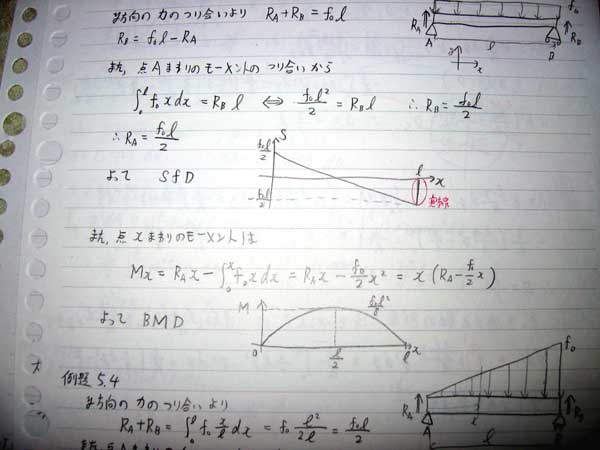 y方向の力のつり合いより RA+RB = f₀l
RB = f₀l − RA
f₀
RA
A
l
B
RB
y
x
また, 点Aまわりのモーメントのつり合いから
∫₀ˡ f₀ x dx = RB l ⇔ f₀l²/2 = RB l ∴ RB = f₀l/2
∴ RA = f₀l/2
よって SFD
S
f₀l/2
f₀l/2
l
x
また, 点xまわりのモーメントは
Mx = RA x − ∫₀ˣ f₀ x dx = RA x − f₀/2 x² = x (RA − f₀/2 x)
よって BMD
M
f₀l²/8
0
l/2
l
x
例題 5.4
y方向の力のつり合いより
RA+RB = ∫₀ˡ f₀ x/l dx = f₀ l²/2l = f₀l/2
f₀
RA
x
RB
l